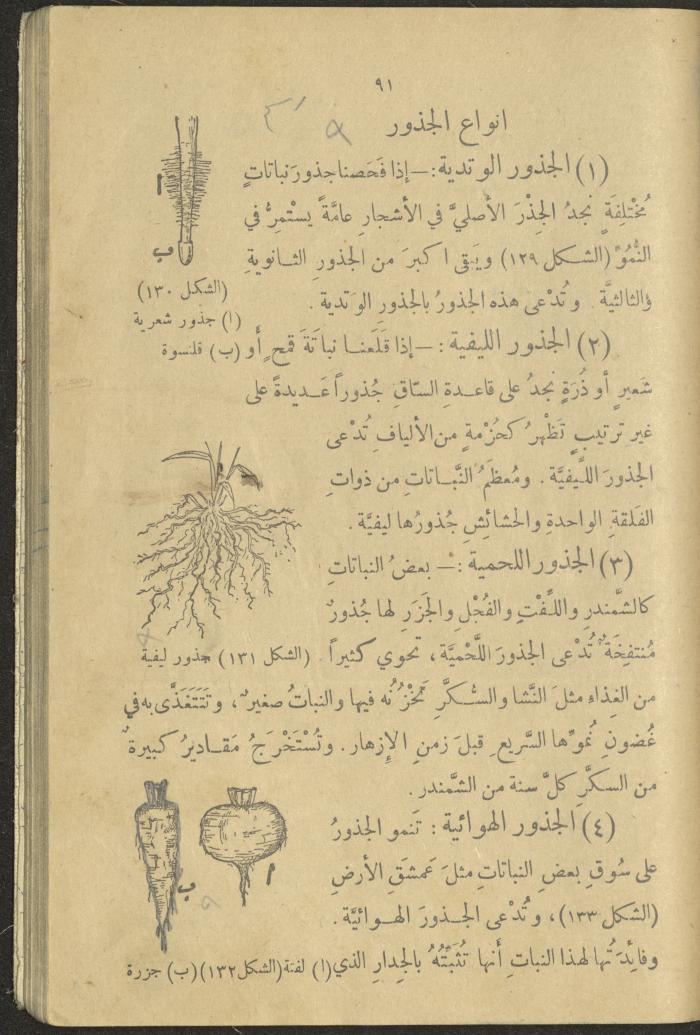 ٩١
انواع الجذور
(١) الجذور الوتدية: — إذا فَحَصنا جذورَ نباتاتٍ
مُخْتلِفَةٍ نجدُ الجِذْرَ الأصليَّ في الأشجارِ عامَّةً يستْمِرُّ في
النُّمُوِّ (الشكل ١٢٩) ويَبقى اكبرَ من الجذورِ الثانويةِ
والثالثيَّة. وتُدْعى هذه الجذورُ بالجذورِ الوَتدية.
ا
ب
(الشكل ١٣٠)
(ا) جذور شعرية
(ب) قلنسوة
(٢) الجذور الليفية: — إذا قَلَعنا نباتَةَ قمحٍ أو
شَعيرٍ أو ذُرَةٍ نجدُ على قاعدةِ السّاقِ جُذوراً عَديدةً على
غير ترتيبٍ تَظْهرُ كحُزْمةٍ من الألياف تُدْعى
الجذورَ اللّيفيَّة. ومُعظَمُ النَّباتاتِ من ذواتِ
الفَلقةِ الواحدةِ والحشائِشِ جُذورُها ليفيَّة.
(٣) الجذور اللحمية: — بعضُ النباتاتِ
كالشَّمندرِ واللِّفْتِ والفُجْلِ والجَزَرِ لها جُذورٌ
مُنتفِخَةٌ تُدْعى الجذورَ اللَّحْميَّة، تحوي كثيراً
(الشكل ١٣١) جذور ليفية
من الغِذاءِ مثلَ النَّشا والسُّكَّرِ تَخْزُنُه فيها والنباتُ صغيرٌ، وتَتَغَذَّى به في
غُضونِ نُموِّها السَّريعِ قبلَ زمنِ الإِزهار. وتُسْتَخْرَجُ مَقاديرُ كبيرةٌ
من السكَّرِ كلَّ سنة من الشَّمندر.
(٤) الجذور الهوائية: تَنمو الجذورُ
على سُوقِ بعضِ النباتاتِ مثلَ عَمشَقِ الأرضِ
(الشكل ١٣٣)، وتُدْعى الجذورَ الهوائيَّة.
وفائِدَتُها لهذا النباتِ أنها تُثَبِّتُهُ بالجِدارِ الذي
ا
ب
(ا) لفتة (الشكل ١٣٢) (ب) جزرة